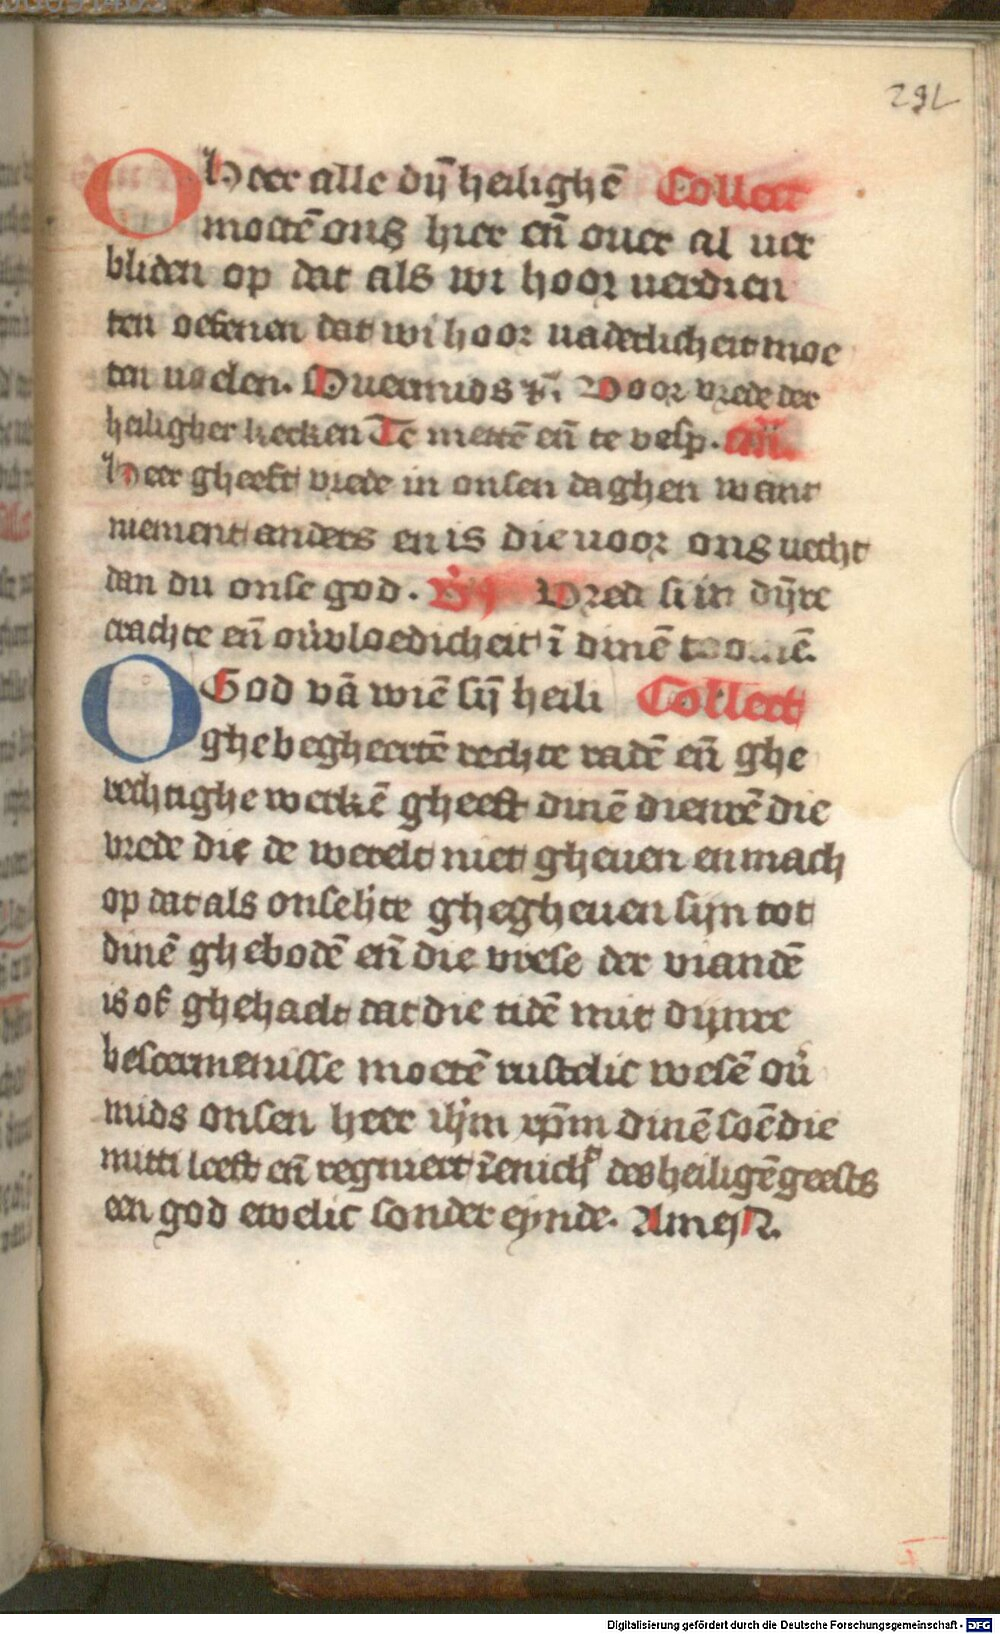 291
O Heer alle dijn heilighē Collect
moetē ons hier eñ ouer al ver
bliden op dat als wi hoor verdien
ten oefenen dat wi hoor vaderlicheit moe
ten voelen. Ouermids Voor vrede der
heiligher kercken Te mettē eñ te vesp. Añ.
Heer gheeft vrede in onsen daghen want
niement anders en is die voor ons vecht
dan du onse god. Vred si in dijnre
crachte eñ ouvloedicheit ī dinē
O God vā wiē sijn heili Collect
ghe begheertē rechte radē eñ ghe
rechtighe werkē gheeft dinē dienrē die
vrede die de werelt niet gheuen en mach
op dat als onse hte ghegheuen sijn tot
dinē ghebodē eñ die vrese der viandē
is of ghehaelt dat die tidē mit dijnre
beschermenisse moetē rustelic wesē ou
mids onsen heer ihm xpm dinē soē die
mitti leeft eñ regniert ī enich des heiligē geests
een god ewelic sonder eynde. Amen.
Digitalisierung gefördert durch die Deutsche Forschungsgemeinschaft - DFG